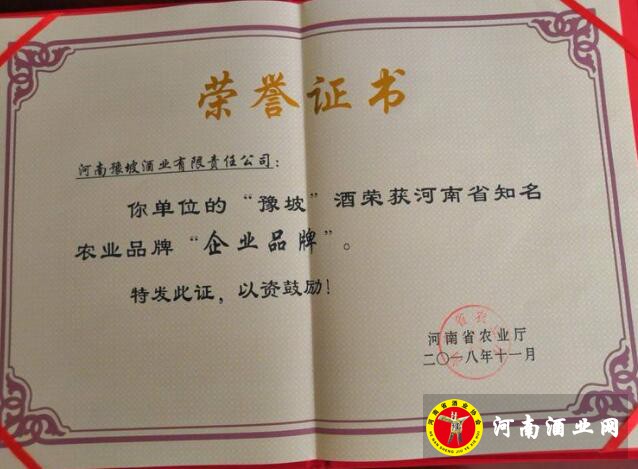 荣誉证书
河南豫坡酒业有限责任公司：
你单位的“豫坡”酒荣获河南省知名
农业品牌“企业品牌”。
特发此证，以资鼓励！
河南省农业厅
二〇一八年十一月
河南省酒业协会
河南酒业网